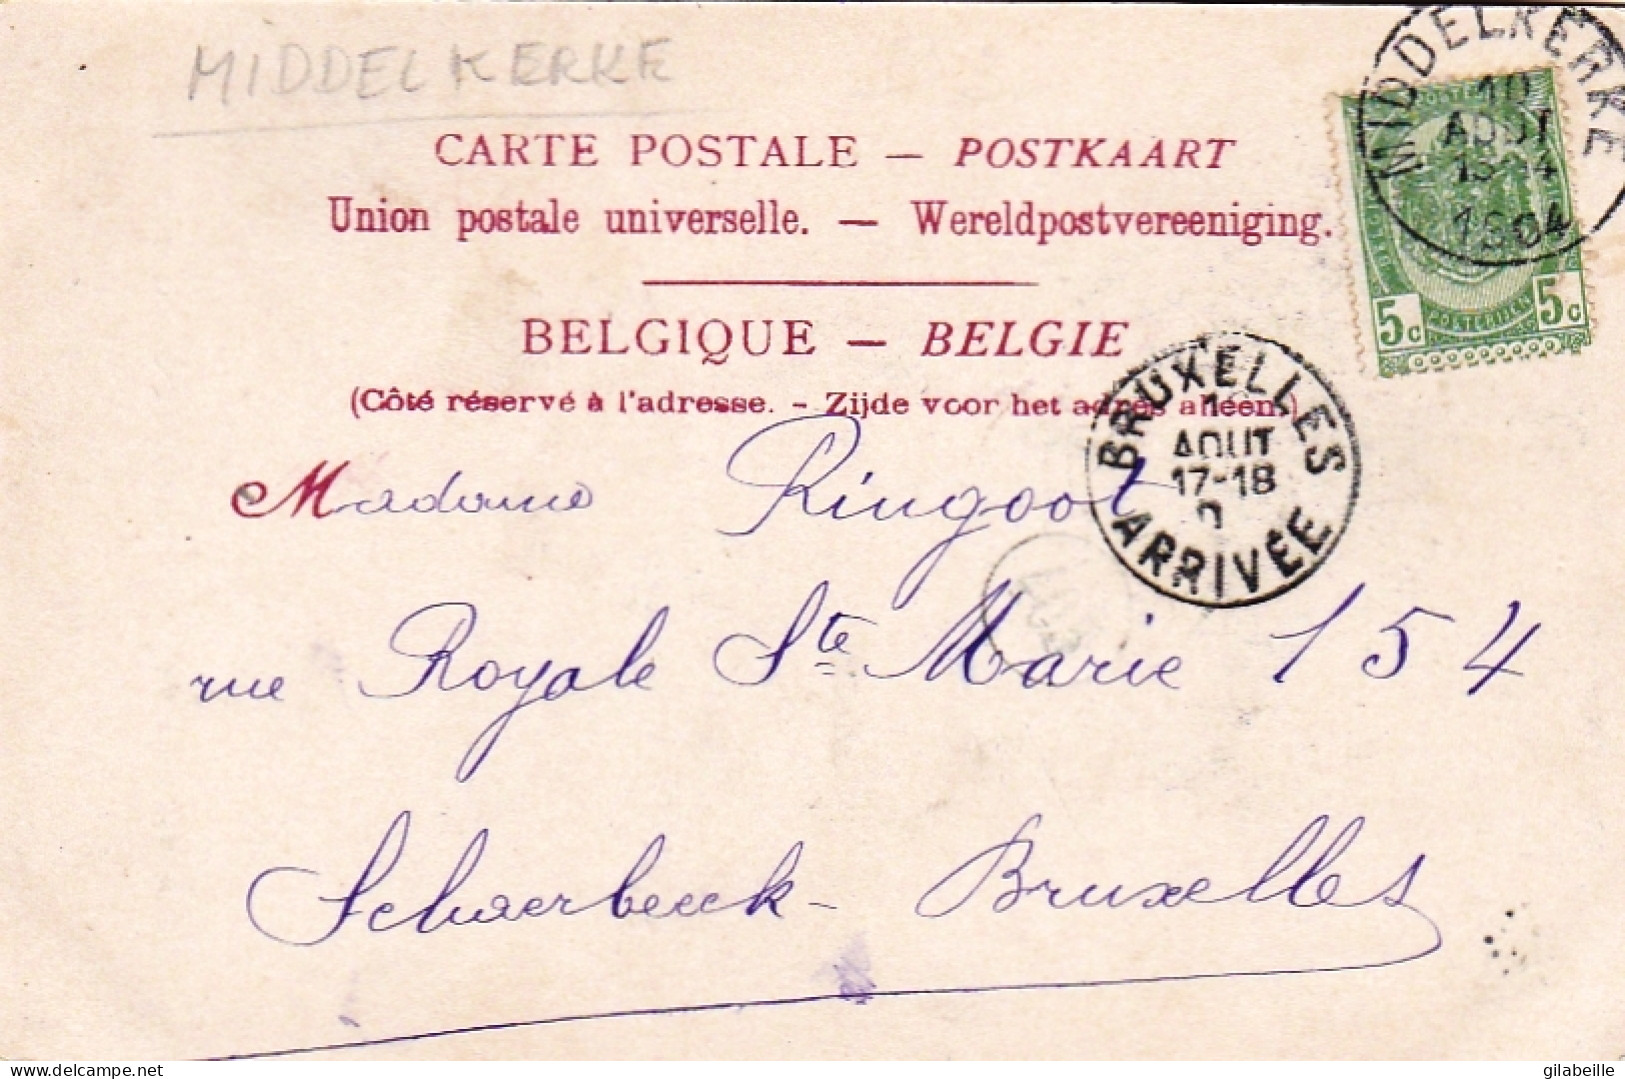 MIDDELKERKE
CARTE POSTALE — POSTKAART
Union postale universelle. — Wereldpostvereeniging.
BELGIQUE — BELGIE
(Côté réservé à l'adresse. - Zijde voor het adres alleen.)
MIDDELKERKE
10
AOUT
1904
5c
5c
BRUXELLES
AOUT
17-18
ARRIVÉE
Madame Ringoot
rue Royale Ste Marie 154
Schaerbeeck - Bruxelles
www.delcampe.net
gilabeille